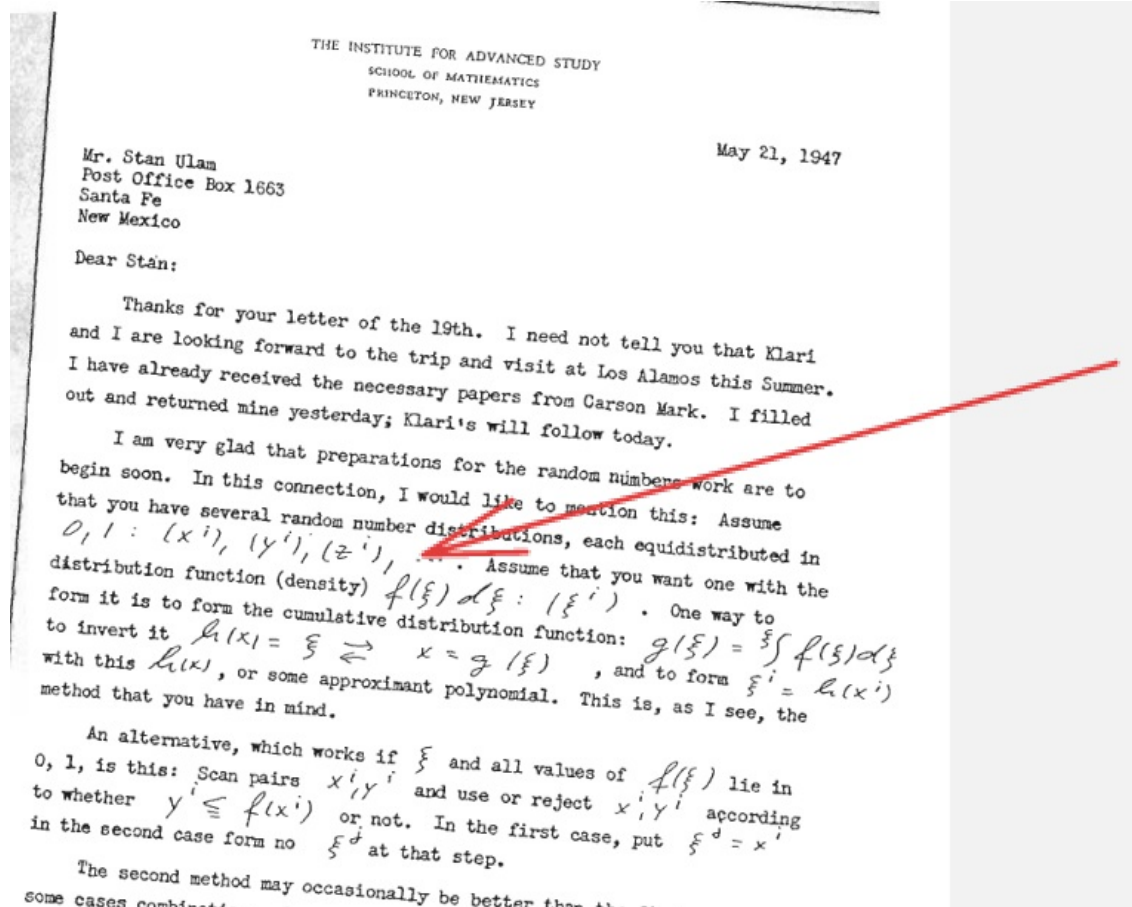 THE INSTITUTE FOR ADVANCED STUDY
SCHOOL OF MATHEMATICS
PRINCETON, NEW JERSEY
May 21, 1947
Mr. Stan Ulam
Post Office Box 1663
Santa Fe
New Mexico
Dear Stan:
Thanks for your letter of the 19th. I need not tell you that Klari
and I are looking forward to the trip and visit at Los Alamos this Summer.
I have already received the necessary papers from Carson Mark. I filled
out and returned mine yesterday; Klari's will follow today.
I am very glad that preparations for the random numbers work are to
begin soon. In this connection, I would like to mention this: Assume
that you have several random number distributions, each equidistributed in
0, 1 : (xⁱ), (yⁱ), (zⁱ), .... Assume that you want one with the
distribution function (density) f(ξ) dξ : (ξⁱ) . One way to
form it is to form the cumulative distribution function: g(ξ) = ∫^ξ f(ξ)dξ
to invert it h(x) = ξ ⇄ x = g(ξ) , and to form ξⁱ = h(xⁱ)
with this h(x), or some approximant polynomial. This is, as I see, the
method that you have in mind.
An alternative, which works if ξ and all values of f(ξ) lie in
0, 1, is this: Scan pairs xⁱ, yⁱ and use or reject xⁱ, yⁱ according
to whether yⁱ ≦ f(xⁱ) or not. In the first case, put ξʲ = xⁱ
in the second case form no ξʲ at that step.
The second method may occasionally be better than the
some cases